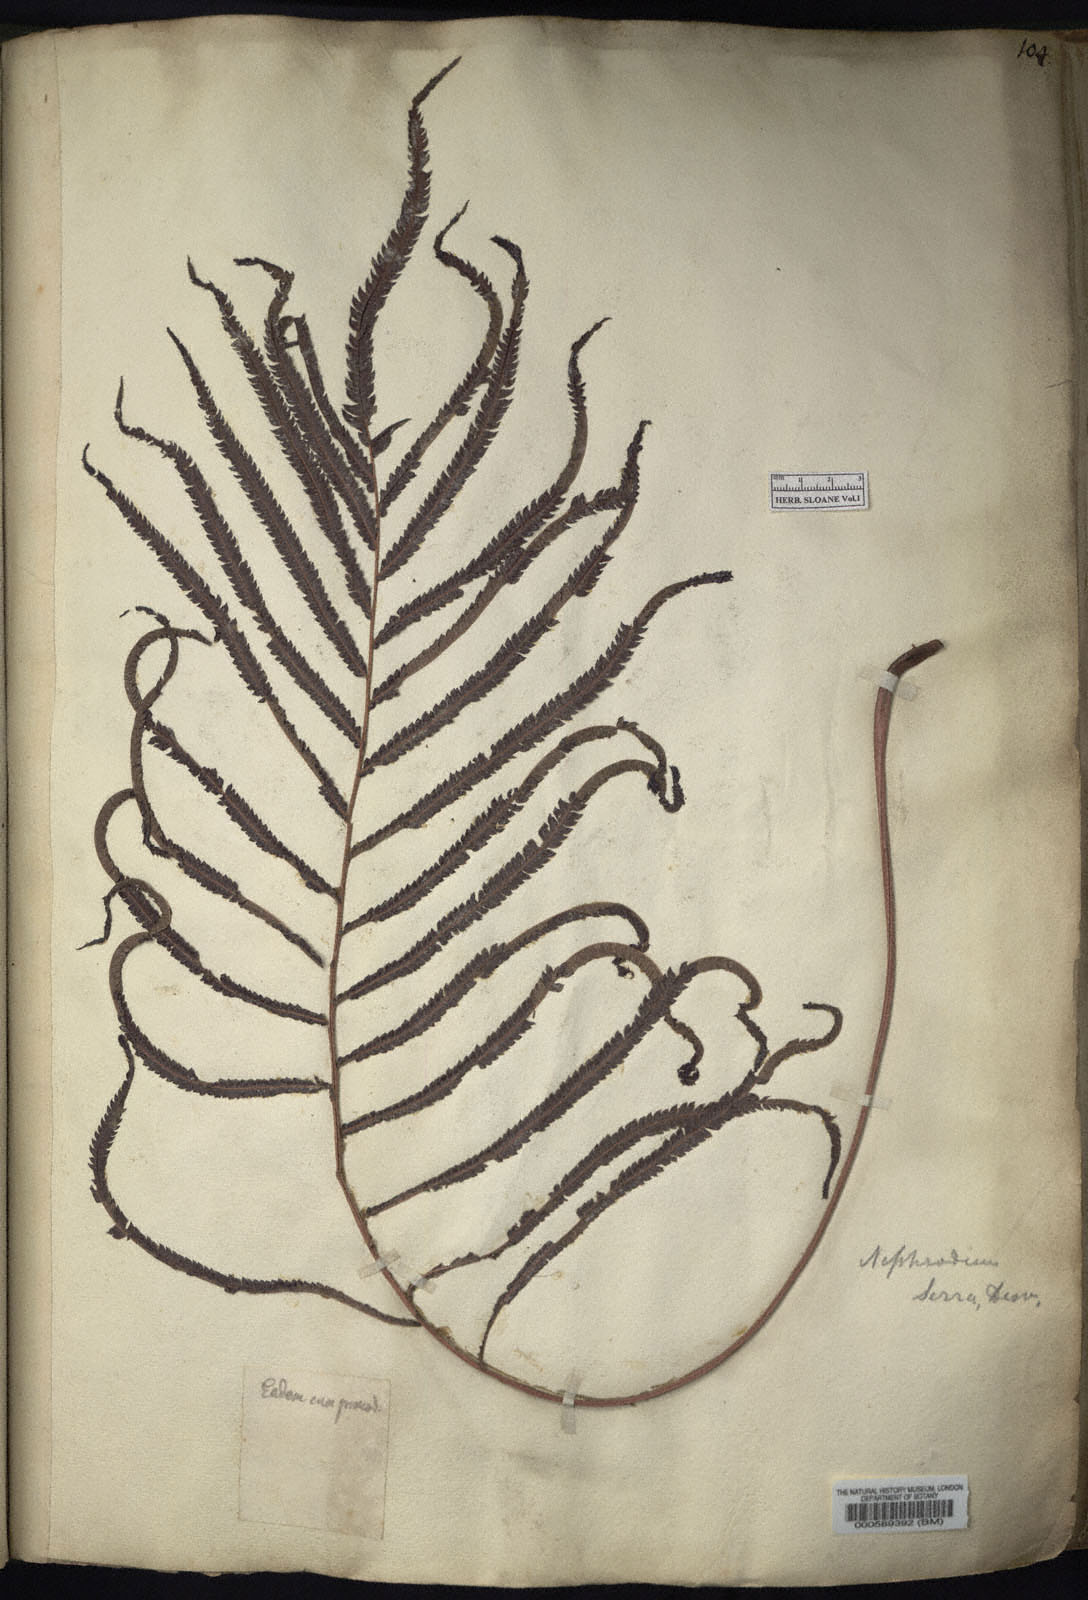 104
mm 1 2 3
HERB. SLOANE Vol.1
Nephrodium
Serra, Desv.
Eadem cum præced.
THE NATURAL HISTORY MUSEUM, LONDON
DEPARTMENT OF BOTANY
000589392 (BM)